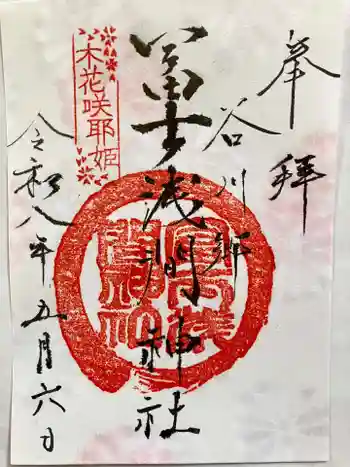 奉拝
谷川
冨士浅間神社
木花咲耶姫
令和八年五月六日